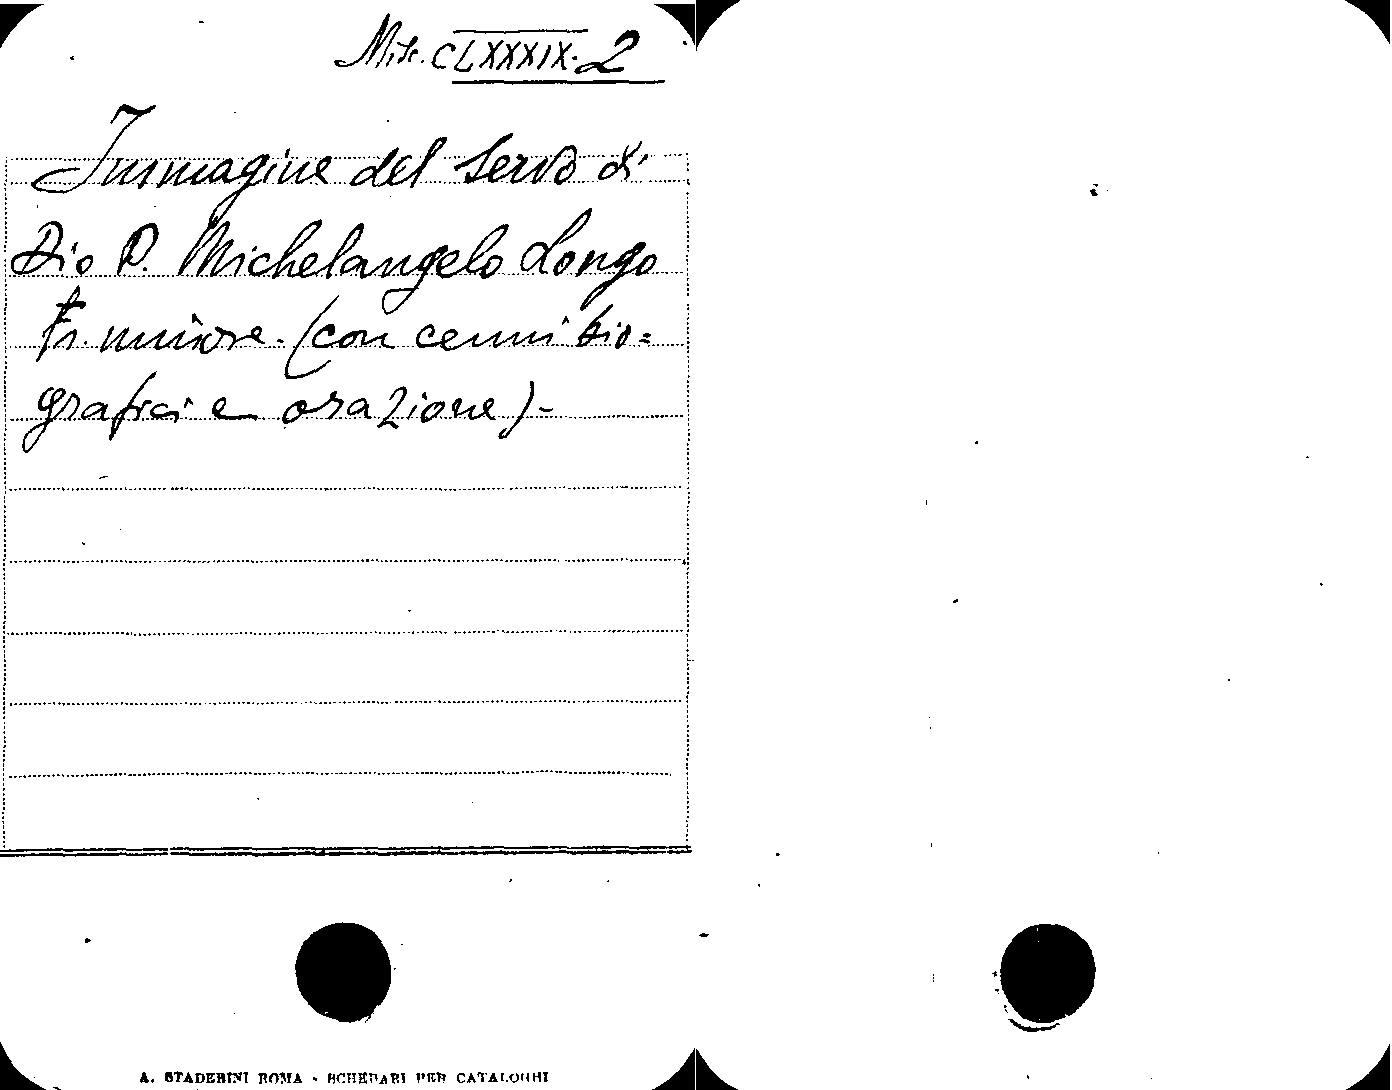 Misc. CLXXXIX. 2
Immagine del Servo di
Dio P. Michelangelo Longo
Fr. minore. (con cenni bio=
grafici e orazione)-
A. STADERINI ROMA - SCHEDARI PER CATALOGHI